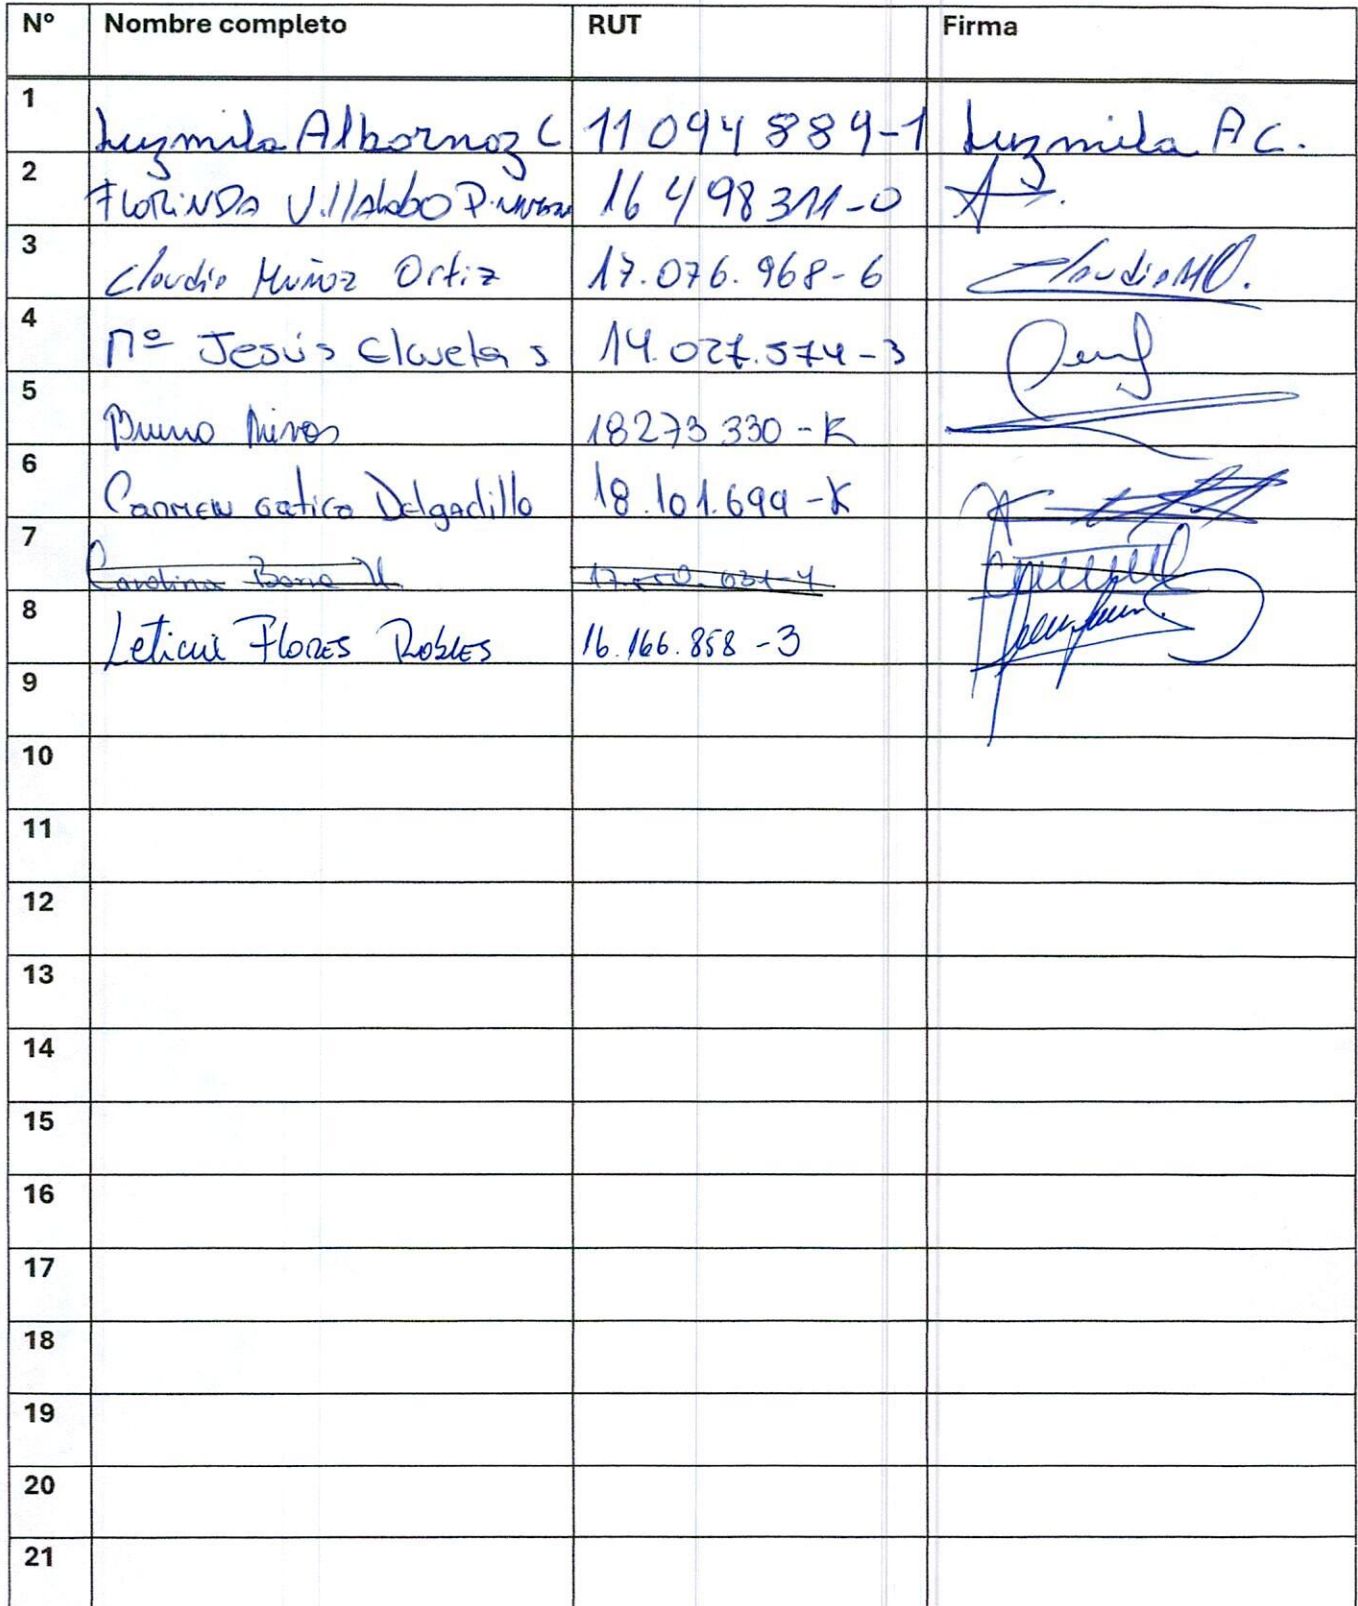 Nº Nombre completo RUT Firma
1 Luzmila Albornoz C 11 094 889-1 Luzmila A C.
2 FLORINDA VillAlobo 16 498 311-0
3 Claudio Muñoz Ortiz 17.076.968-6 Claudio MO.
4 Mª Jesús s 14.027.574-3
5 Bruno 18273 330-K
6 Carmen Gatica Delgadillo 18.101.699-K
7 Carolina
8 Leticia Flores Robles 16.166.858-3
9
10
11
12
13
14
15
16
17
18
19
20
21